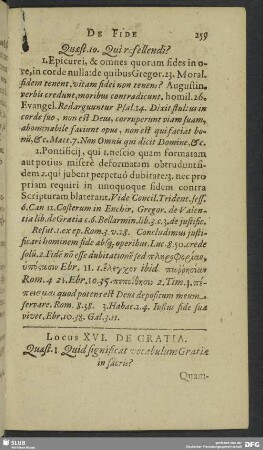 DE FIDE 259
Quæst. 10. Qui refellendi?
1. Epicurei, & omnes quorum fides in o-
re, in corde nulla: de quibus Gregor. 23. Moral.
fidem tenent, vitam fidei non tenent? Augustin.
verbis credunt, moribus contradicunt. homil. 26.
Evangel. Redarguuntur Psal. 14. Dixit stultus in
corde suo, non est Deus, corruperunt viam suam,
abominabile faciunt opus, non est qui faciat bo-
nũ, &c. Mat. 7. Non Omnis qui dicit Domine, &c.
2. Pontificij, qui 1. nescio quam formatam
aut potius miserè deformatam obtrudunt:
2. qui jubent perpetuò dubitare, nec pro
priam requiri in unoquoque fidem contra
Scripturam blaterant. Vide Concil. Trident. sess.
6. Can. 12. Costerum in Enchir, Gregor. de Valen-
tia lib. de Gratia c. 6. Bellarmin. lib. 3. c. 3. de justific.
Refut. 1. ex ep. Rom. 3. v. 28. Concludimus justi-
ficari hominem fide absq; operibus. Luc. 8. 50. crede
solũ. 2. Fidẽ nõ esse dubitationẽ sed πληροφορίαν,
ὑπόστασιν Ebr. 11. 1. ἔλεγχον ibid
Rom. 4. 21. Ebr. 10. 35. πεποίθησιν 2. Tim. 1. πέ-
πεισμαι quod potens est Deus depositum meum
servare. Rom. 8. 38. 3. Habac. 2. 4. Iustus fide suâ
vivet, Ebr. 10. 38. Gal. 3. 11.
Locus XVI. DE GRATIA.
Quæst. 1. Quid significat vocabulum Gratiæ
in sacris?
Quam-
SLUB
Wir führen Wissen.